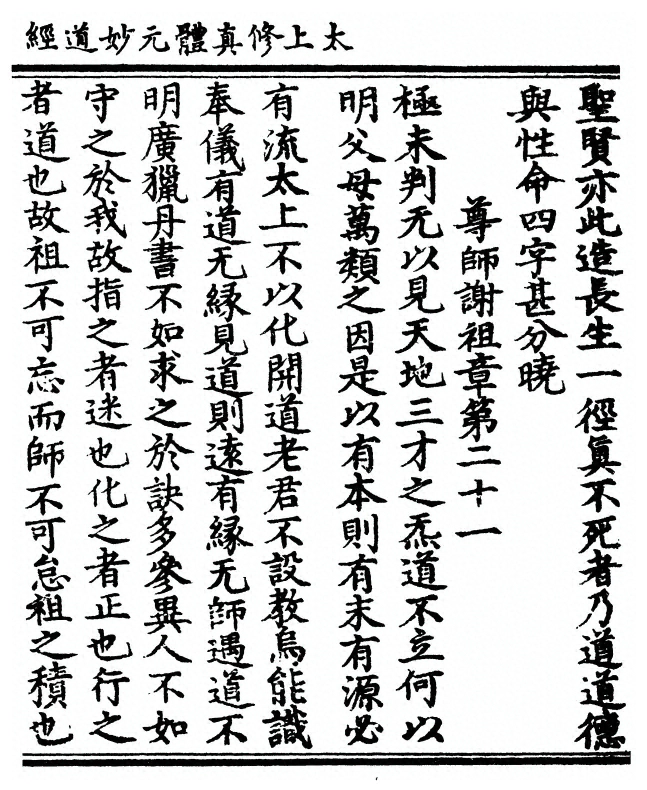 太上修真體元妙道經
聖賢亦此造長生一徑真不死者乃道道德
與性命四字甚分曉
尊師謝祖章第二十一
極未判无以見天地三才之炁道不立何以
明父母萬類之因是以有本則有末有源必
有流太上不以化開道老君不設教烏能識
奉儀有道无緣見道則遠有緣无師遇道不
明廣獵丹書不如求之於訣多參異人不如
守之於我故指之者迷也化之者正也行之
者道也故祖不可忘而師不可怠祖之積也